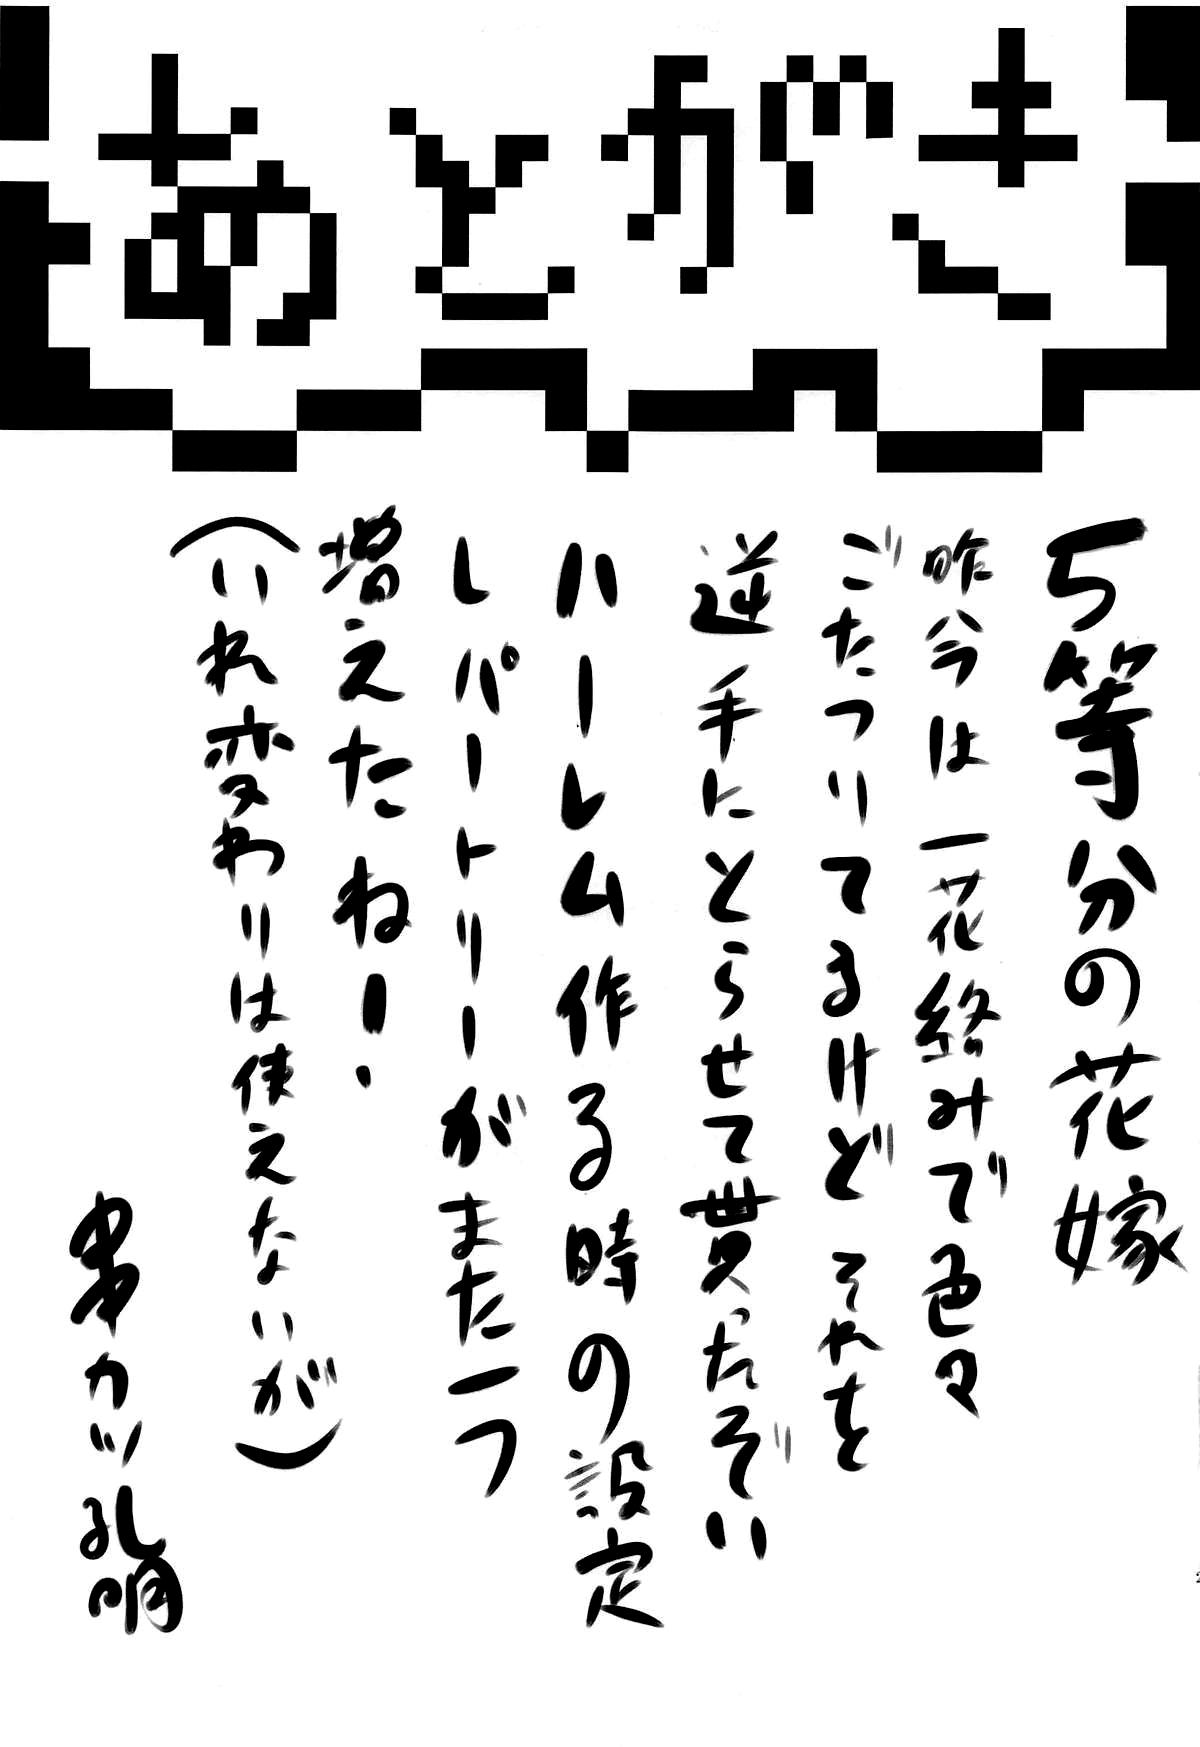 あとがき
5等分の花嫁
昨今は一花絡みで色々
ごたつりてるけどそれを
逆手にとらせて貰ったぞい
ハーレム作る時の設定
レパートリーがまた一つ
増えたね!
(いれ変わりは使えないが)
串カツ孔明